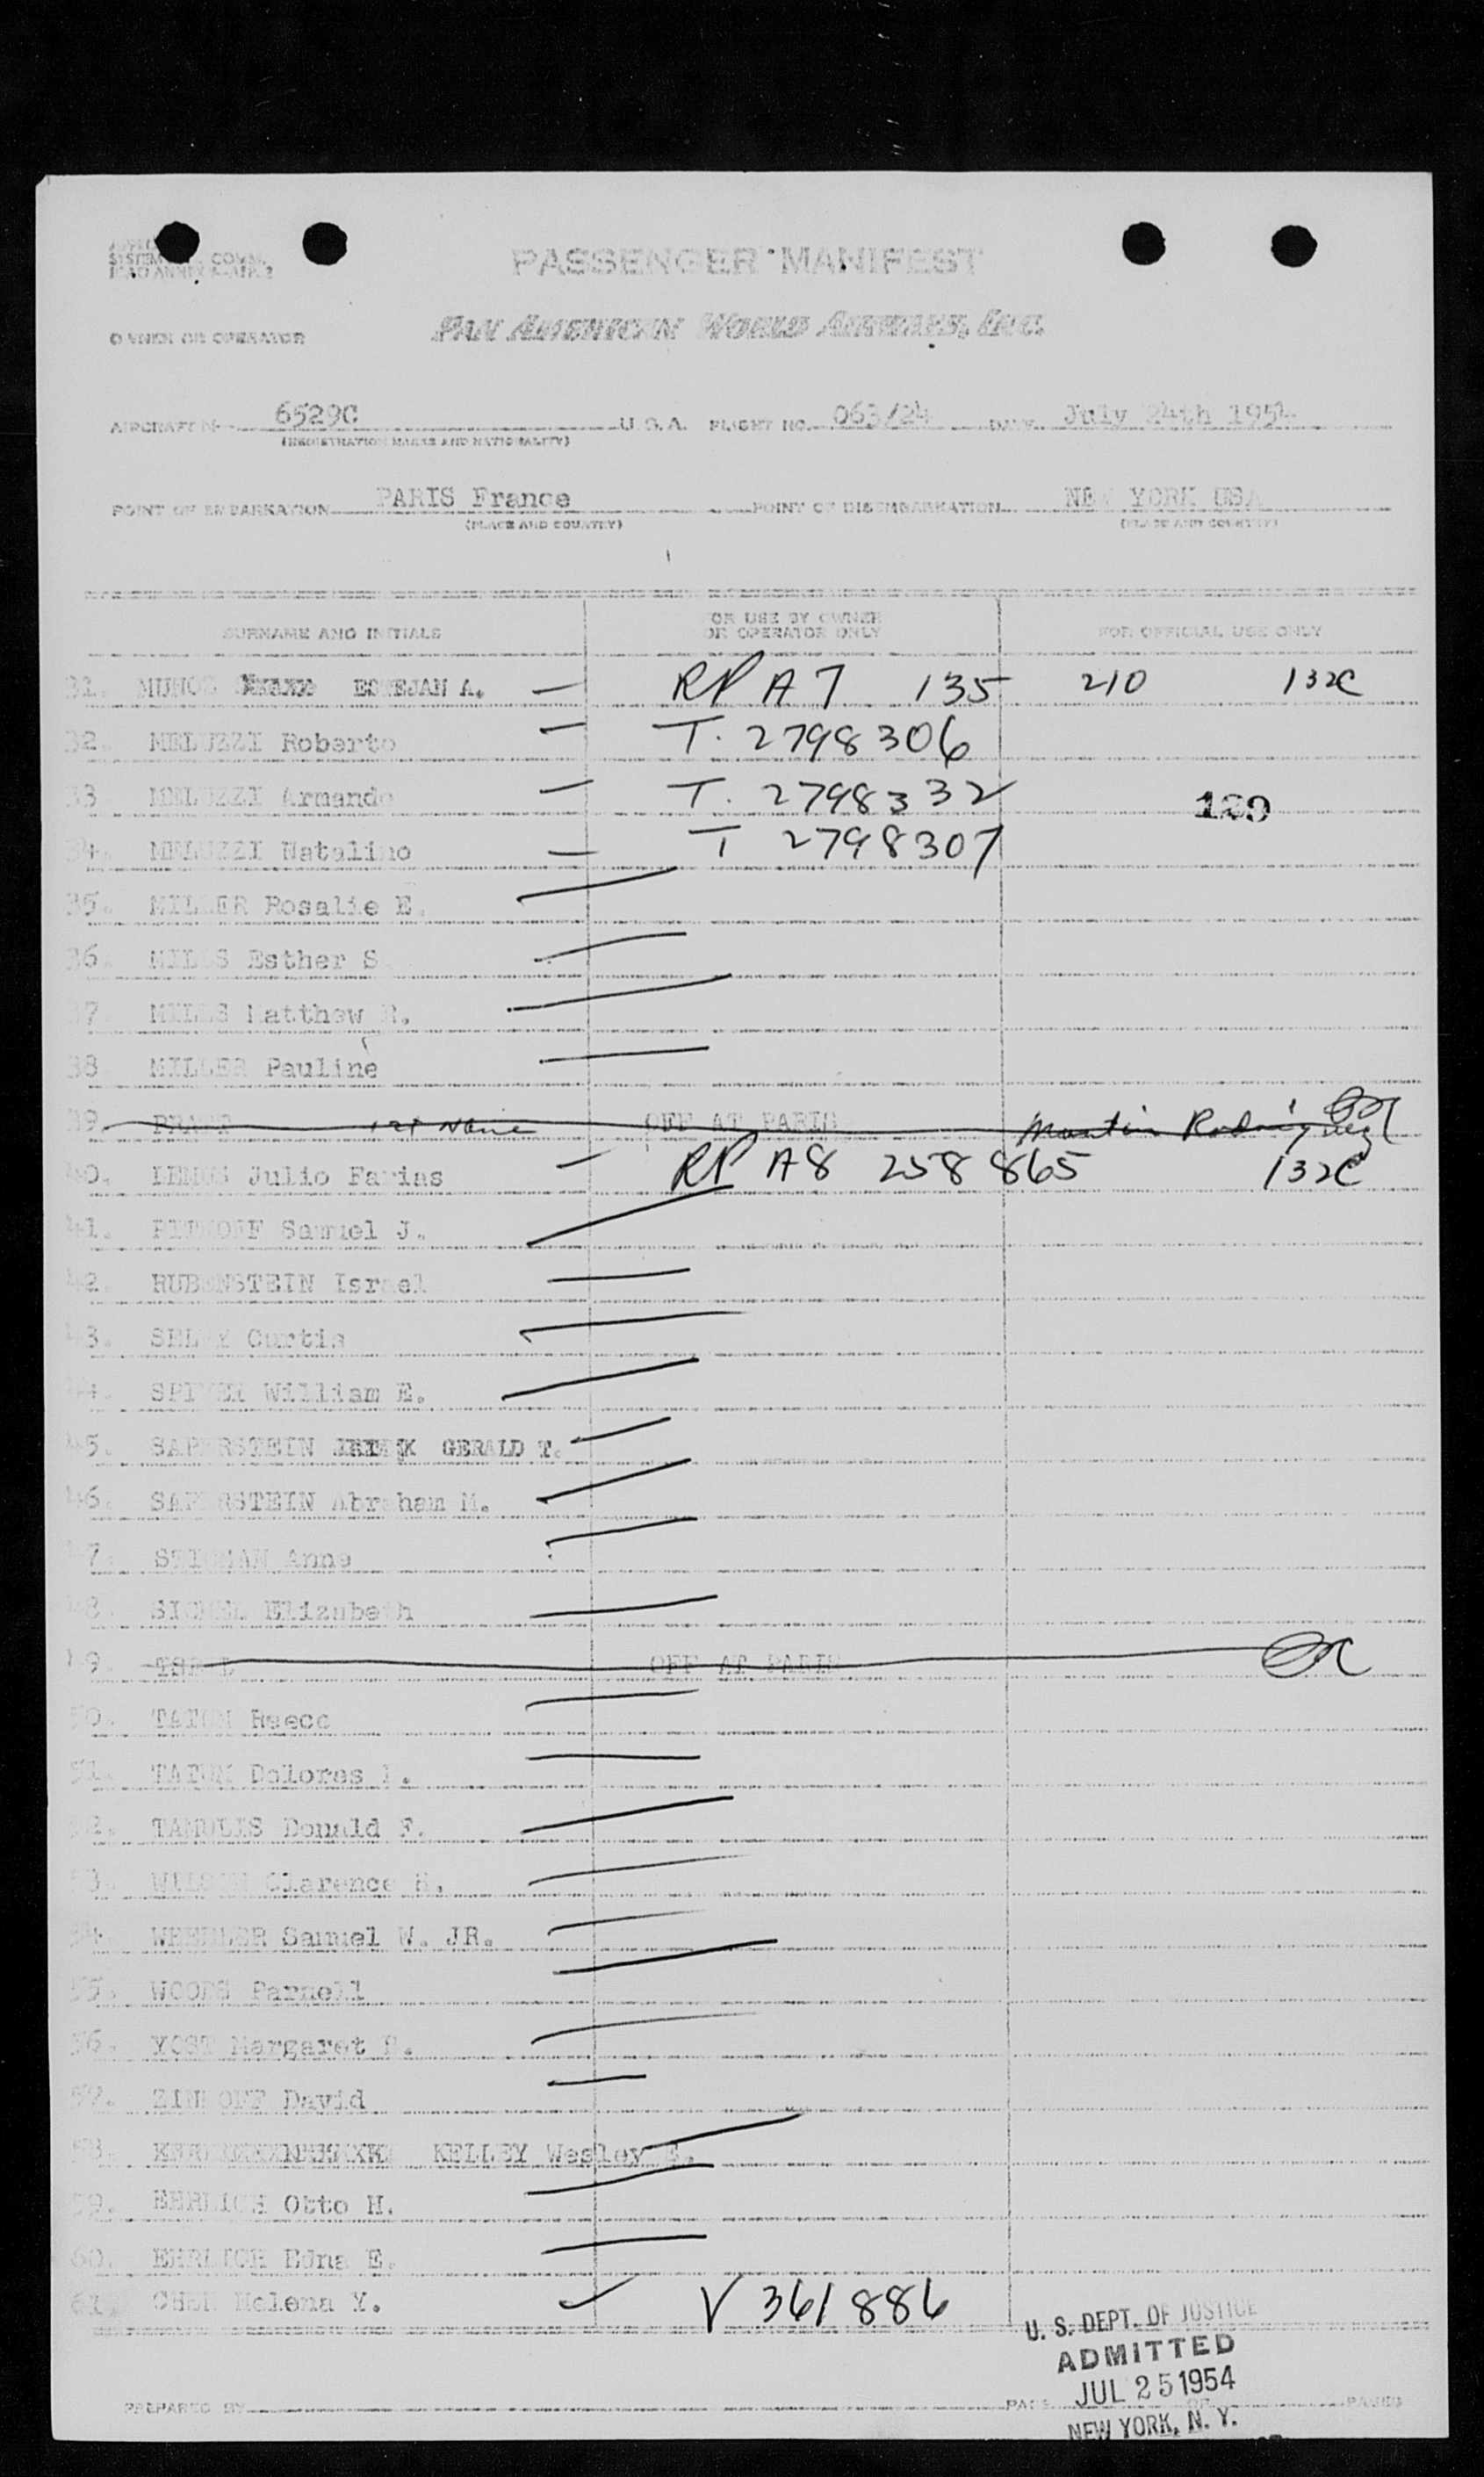 PASSENGER MANIFEST
OWNER OR OPERATOR PAN AMERICAN WORLD AIRWAYS, INC.
AIRCRAFT 6529C U.S.A. FLIGHT NO. 063/24 DATE July 24th 1954
(REGISTRATION MARKS AND NATIONALITY)
POINT OF EMBARKATION PARIS France POINT OF DISEMBARKATION NEW YORK USA
(PLACE AND COUNTRY) (PLACE AND COUNTRY)
SURNAME AND INITIALS FOR USE BY OWNER OR OPERATOR ONLY FOR OFFICIAL USE ONLY
31. MUNOZ A. RP A7 135 210 132C
32. MELUZZI Roberto T. 2798306
33 MELUZZI Armando T. 2798332
34. MELUZZI Natalino T 2798307
35. MILLER Rosalie E.
36. MILLS Esther S
37. MILLS Matthew R.
38 MILLER Pauline
39. 1st Name OFF AT PARIS Martin Rodriguez
40. LEMOS Julio Farias RP A8 258 865 132C
41. Samuel J.
42. RUBENSTEIN Israel
43. Curtis
44. William E.
45. SAPERSTEIN GERALD T.
46. SAPERSTEIN Abraham M.
47. Anne
48. Elizabeth
49. OFF AT PARIS
50. TATUM Reece
51. TATUM Dolores
52. TAMULIS Donald F.
53. WILSON Clarence
54. WHEELER Samuel W. JR.
55. WOODS Parnell
56. YOST Margaret
57. ZINKOFF David
58. KELLEY Wesley
59. EHRLICH Otto H.
60. EHRLICH Edna E.
61. CHEN Helena Y. V 361 886
U. S. DEPT. OF JUSTICE
ADMITTED
JUL 25 1954
PREPARED BY PAGE OF PAGES
NEW YORK, N. Y.